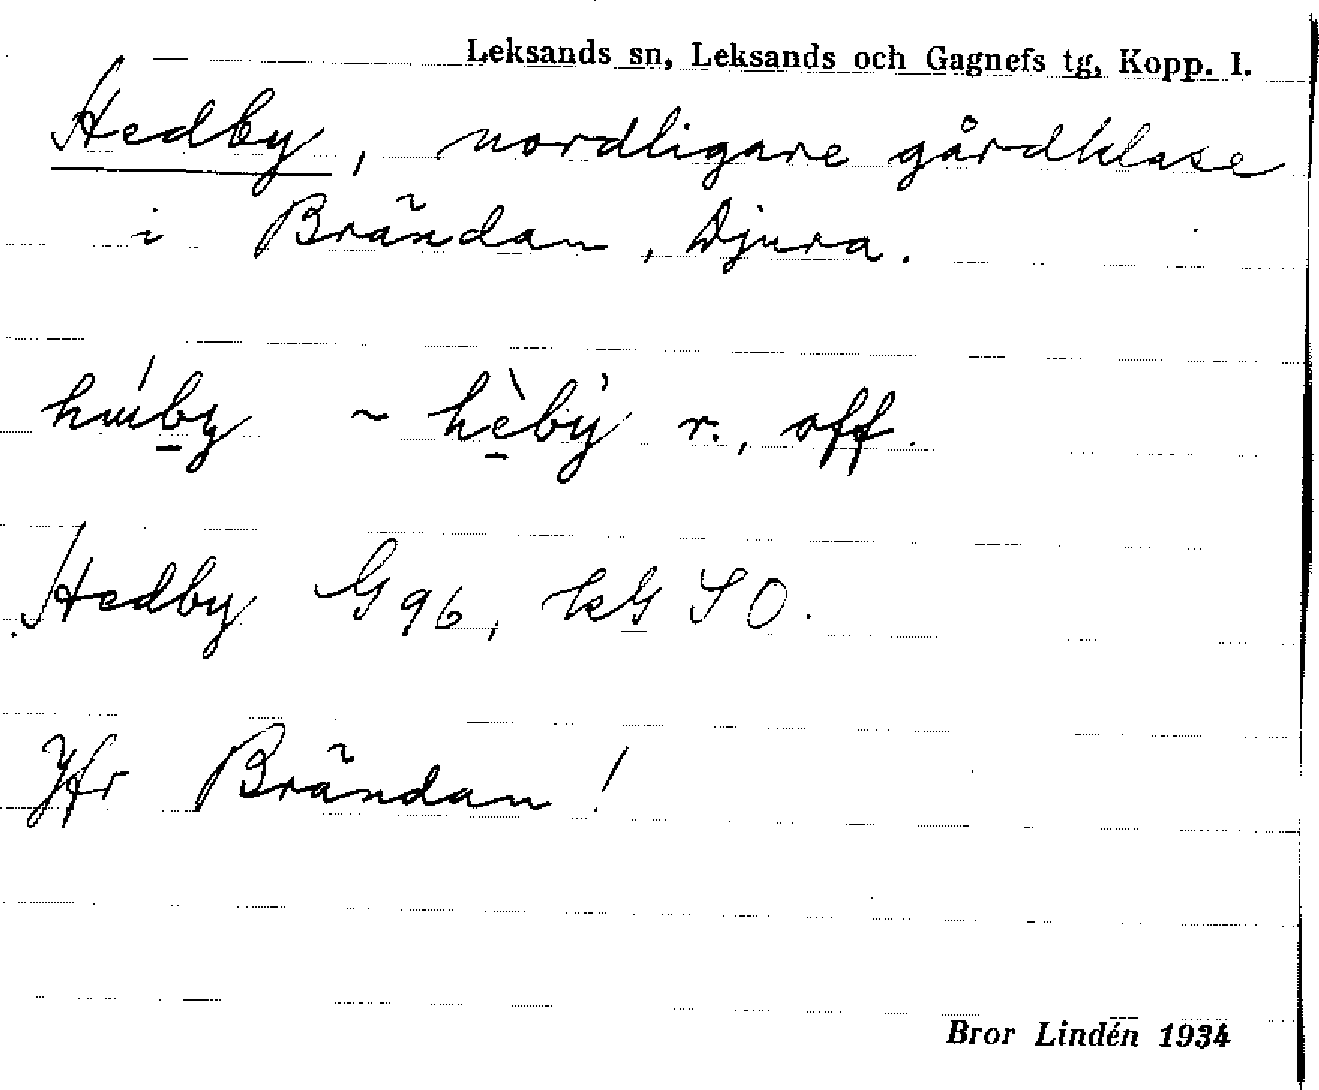 Leksands sn, Leksands och Gagnefs tg, Kopp. l.
Hedby, nordligare gårdklase
i Brändan, Djura.
~ hèby r., off.
Hedby G96, kG SO.
Jfr Brändan!
Bror Lindén 1934